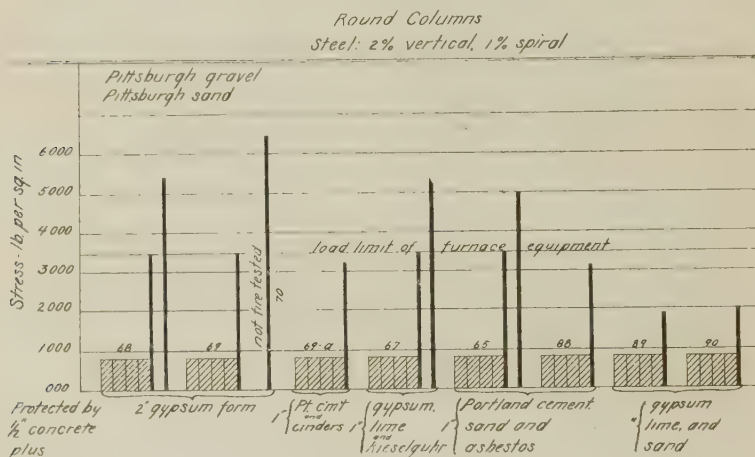 Round Columns
Steel: 2% vertical, 1% spiral
Pittsburgh gravel
Pittsburgh sand
Stress - lb. per sq. in
6000
5000
4000
3000
2000
1000
000
load limit of furnace equipment
not fire tested
70
68
69
69-a
67
65
88
89
90
Protected by
1/2" concrete
plus
2" gypsum form
1" Pt. cmt
and
cinders
1" gypsum,
lime
and
kieselguhr
1" Portland cement
sand and
asbestos
" gypsum
lime, and
sand